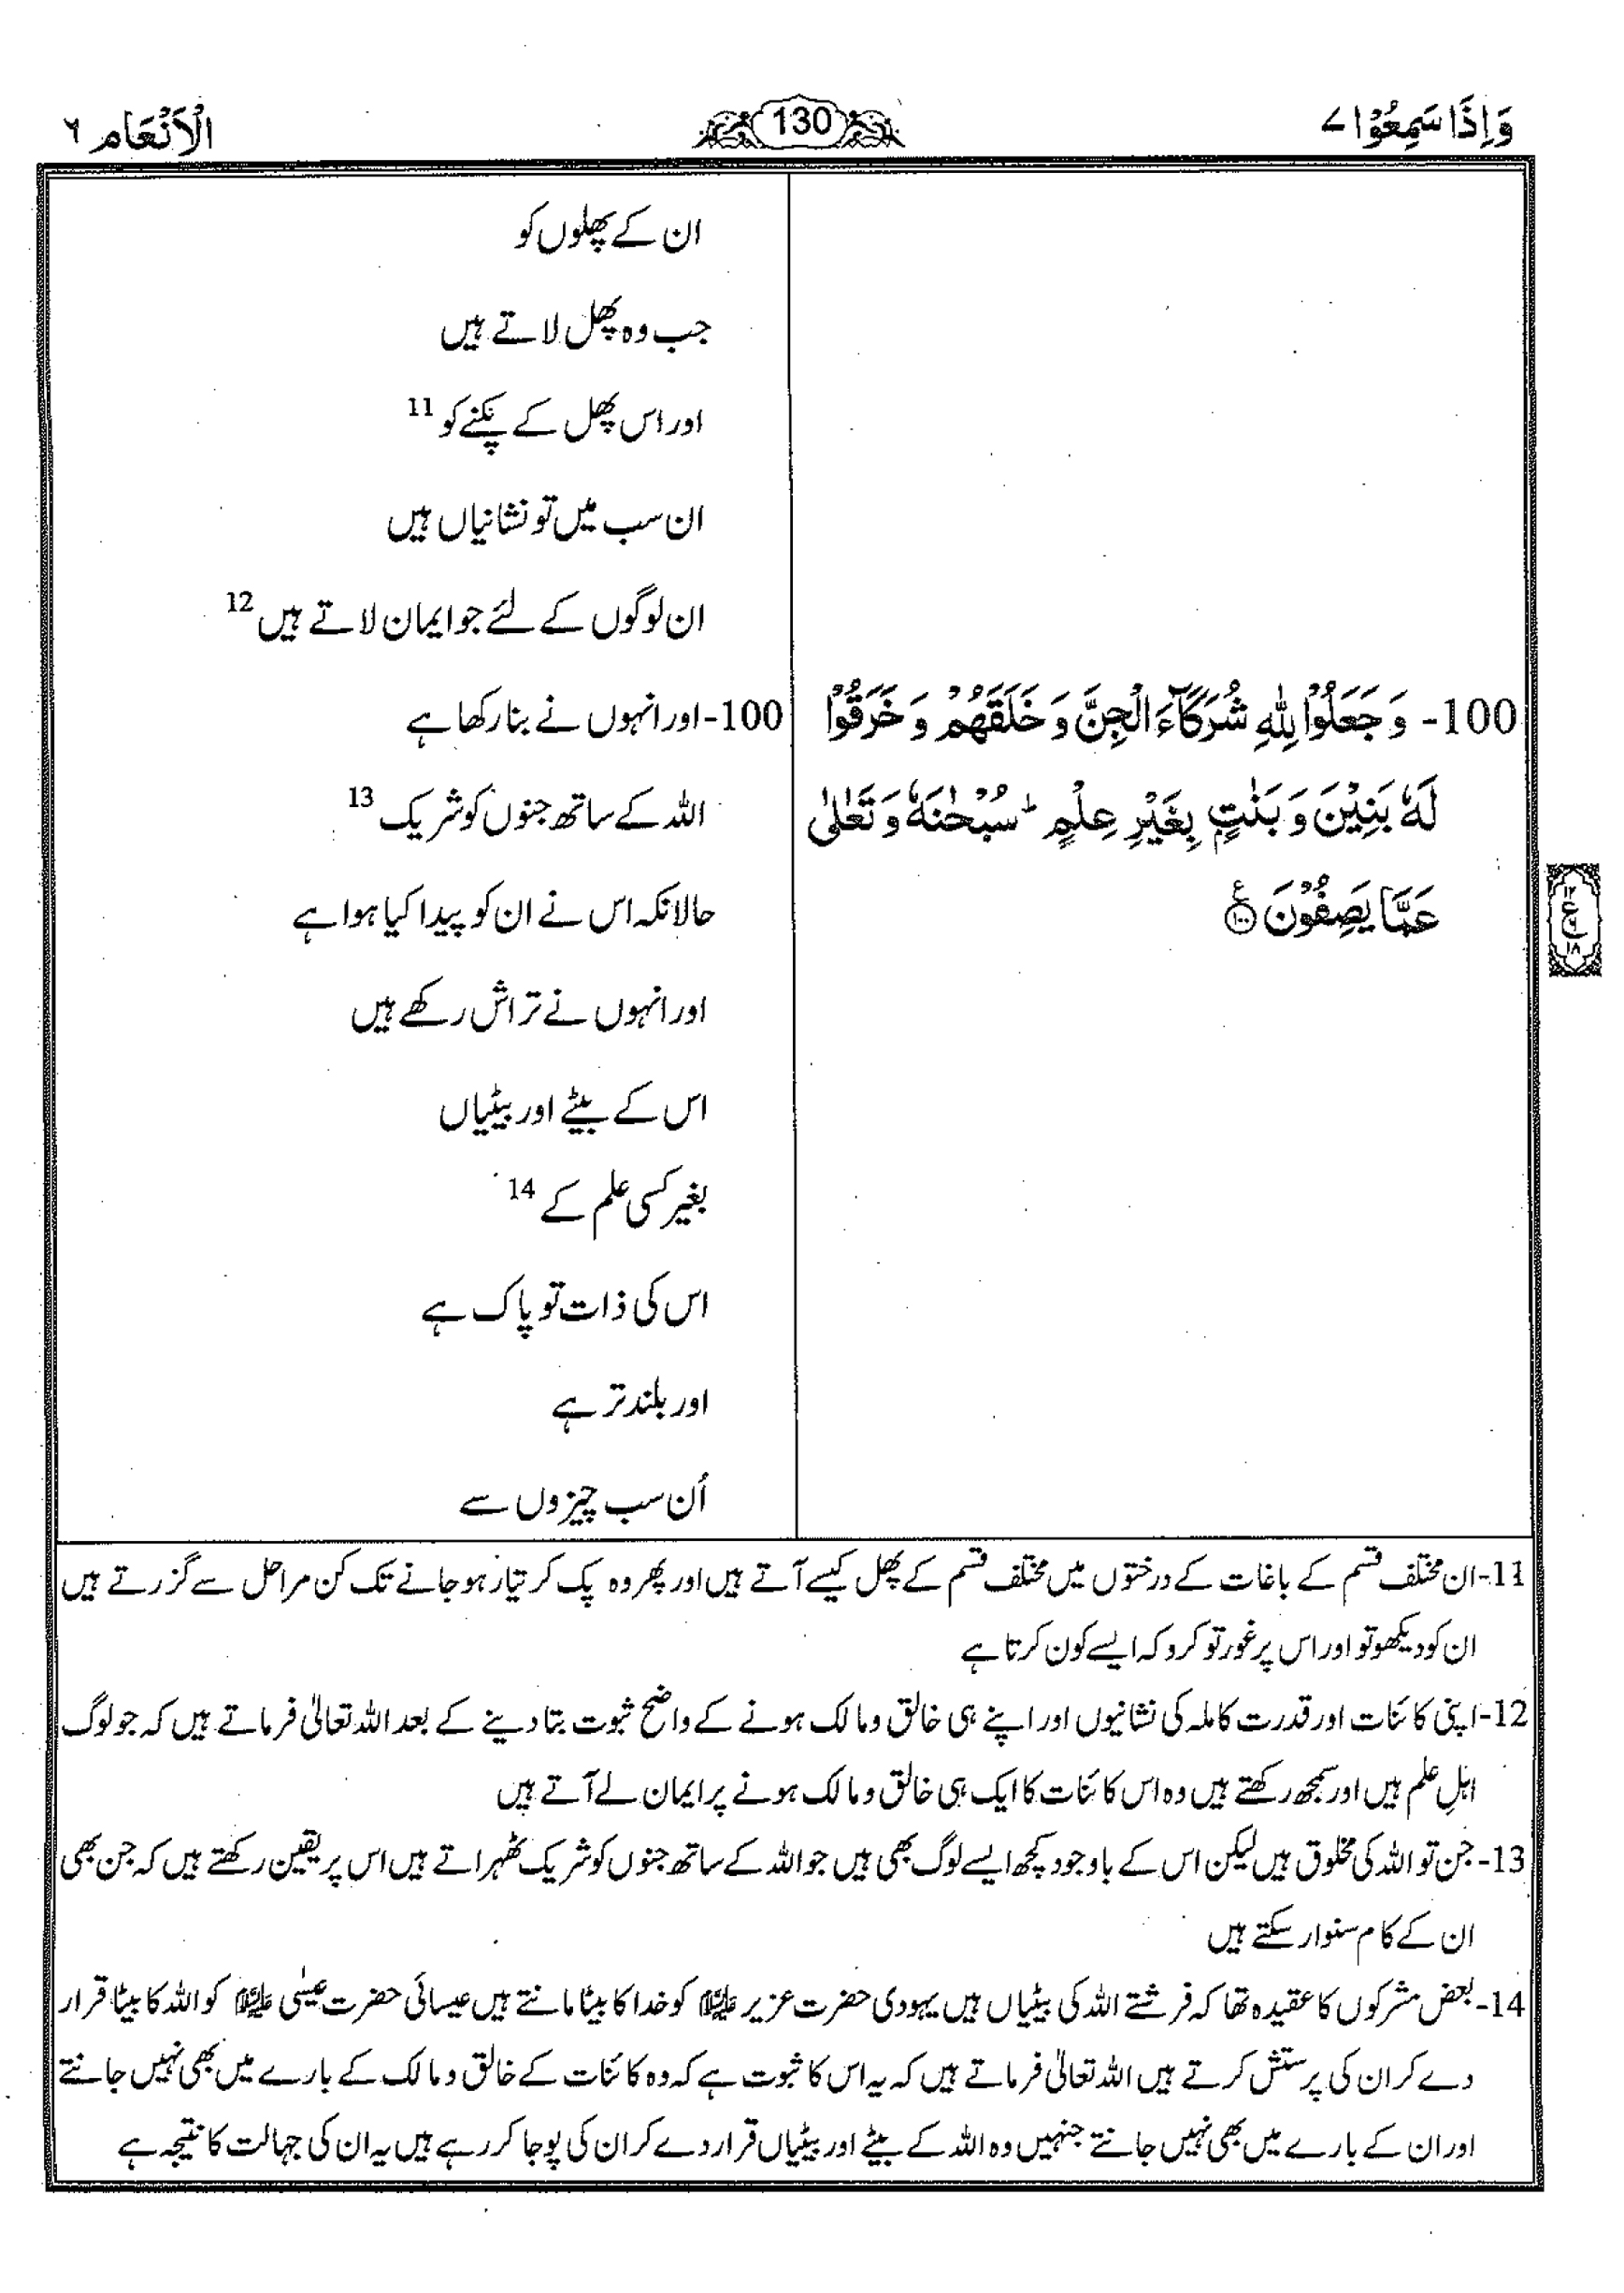 وَاِذَا سَمِعُوْا ٧
130
الْاَنْعَام ٦
100- وَ جَعَلُوْا لِلّٰهِ شُرَكَآءَ الْجِنَّ وَ خَلَقَهُمْ وَ خَرَقُوْا
لَهٗ بَنِيْنَ وَ بَنٰتٍۭ بِغَيْرِ عِلْمٍ ؕ سُبْحٰنَهٗ وَ تَعٰلٰى
عَمَّا يَصِفُوْنَ ۧ ١٠٠
١٢
ع
٩
١٨
ان کے پھلوں کو
جب وہ پھل لاتے ہیں
اور اس پھل کے پکنے کو 11
ان سب میں تو نشانیاں ہیں
ان لوگوں کے لئے جو ایمان لاتے ہیں 12
100- اور انہوں نے بنا رکھا ہے
اللہ کے ساتھ جنوں کو شریک 13
حالانکہ اس نے ان کو پیدا کیا ہوا ہے
اور انہوں نے تراش رکھے ہیں
اس کے بیٹے اور بیٹیاں
بغیر کسی علم کے 14
اس کی ذات تو پاک ہے
اور بلند تر ہے
اُن سب چیزوں سے
11- ان مختلف قسم کے باغات کے درختوں میں مختلف قسم کے پھل کیسے آتے ہیں اور پھر وہ پک کر تیار ہو جانے تک کن مراحل سے گزرتے ہیں
ان کو دیکھو تو اور اس پر غور تو کرو کہ ایسے کون کرتا ہے
12- اپنی کائنات اور قدرت کاملہ کی نشانیوں اور اپنے ہی خالق و مالک ہونے کے واضح ثبوت بتا دینے کے بعد اللہ تعالیٰ فرماتے ہیں کہ جو لوگ
اہلِ علم ہیں اور سمجھ رکھتے ہیں وہ اس کائنات کا ایک ہی خالق و مالک ہونے پر ایمان لے آتے ہیں
13- جن تو اللہ کی مخلوق ہیں لیکن اس کے باوجود کچھ ایسے لوگ بھی ہیں جو اللہ کے ساتھ جنوں کو شریک ٹھہراتے ہیں اس پر یقین رکھتے ہیں کہ جن بھی
ان کے کام سنوار سکتے ہیں
14- بعض مشرکوں کا عقیدہ تھا کہ فرشتے اللہ کی بیٹیاں ہیں یہودی حضرت عزیر علیہ السلام کو خدا کا بیٹا مانتے ہیں عیسائی حضرت عیسٰی علیہ السلام کو اللہ کا بیٹا قرار
دے کر ان کی پرستش کرتے ہیں اللہ تعالیٰ فرماتے ہیں کہ یہ اس کا ثبوت ہے کہ وہ کائنات کے خالق و مالک کے بارے میں بھی نہیں جانتے
اور ان کے بارے میں بھی نہیں جانتے جنہیں وہ اللہ کے بیٹے اور بیٹیاں قرار دے کر ان کی پوجا کر رہے ہیں یہ ان کی جہالت کا نتیجہ ہے